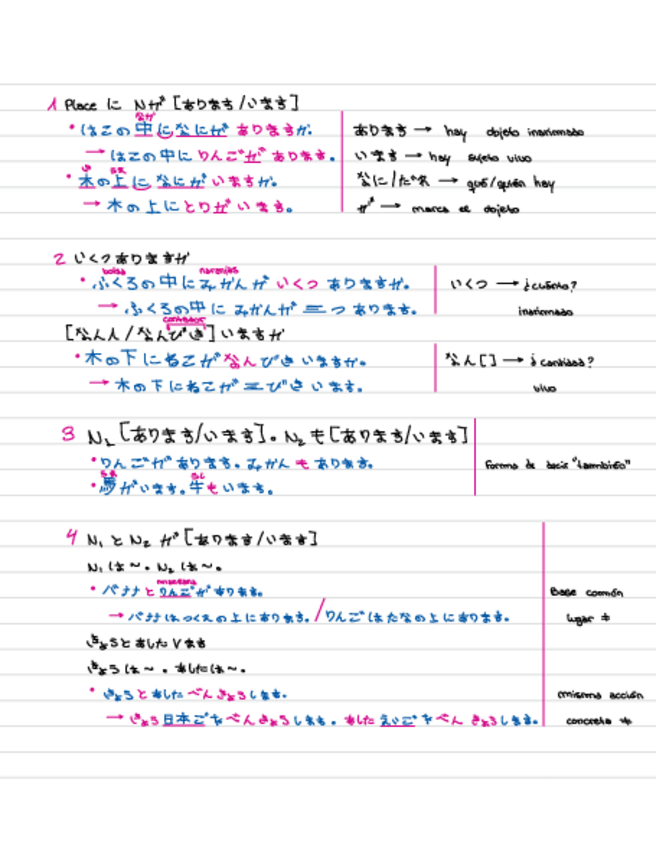 1 Place に Nが [あります/います]
なか
・はこの中になにが ありますか。 あります → hay objeto inanimado
→ はこの中に りんごが あります。 います → hay sujeto vivo
き うえ
・木の上に なにが いますか。 なに/だれ → qué/quién hay
→ 木の上にとりが います。 が → marca el objeto
2 いくつありますか
bolsa naranjas
・ふくろの中にみかんが いくつ ありますか。 いくつ → ¿cuánto?
→ ふくろの中に みかんが 三つ あります。 inanimado
contador
[なん人/なんびき] いますか
・木の下にねこが なんびき いますか。 なん[] → ¿cantidad?
→ 木の下にねこが 三びき います。 vivo
3 N₁ [あります/います]。N₂ も [あります/います]
・りんごが あります。みかん も あります。 forma de decir "también"
うま うし
・馬がいます。牛もいます。
4 N₁ と N₂ が [あります/います]
N₁ は ~。N₂ は ~。
manzana
・バナナと りんごが あります。 Base común
→ バナナはつくえの上にあります。/りんごはたなの上にあります。 lugar ≠
きょうとあした Vます
きょうは ~。あしたは ~。
・きょうとあした べんきょうします。 misma acción
→ きょう日本ごをべんきょうします。あした えいごをべんきょうします。 concreta ≠